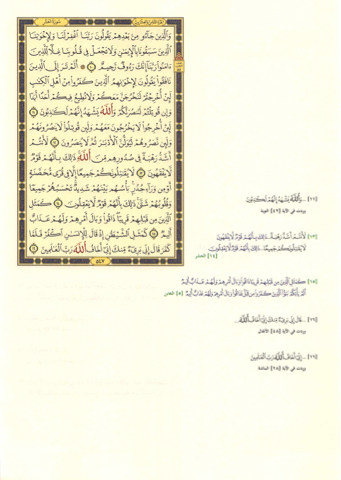 الجزء الثامن والعشرون
سورة الحشر
وَالَّذِينَ جَآءُو مِنۢ بَعْدِهِمْ يَقُولُونَ رَبَّنَا ٱغْفِرْ لَنَا وَلِإِخْوَٰنِنَا
ٱلَّذِينَ سَبَقُونَا بِٱلْإِيمَٰنِ وَلَا تَجْعَلْ فِى قُلُوبِنَا غِلًّا لِّلَّذِينَ
ءَامَنُوا۟ رَبَّنَآ إِنَّكَ رَءُوفٌ رَّحِيمٌ ١٠ أَلَمْ تَرَ إِلَى ٱلَّذِينَ
نَافَقُوا۟ يَقُولُونَ لِإِخْوَٰنِهِمُ ٱلَّذِينَ كَفَرُوا۟ مِنْ أَهْلِ ٱلْكِتَٰبِ
لَئِنْ أُخْرِجْتُمْ لَنَخْرُجَنَّ مَعَكُمْ وَلَا نُطِيعُ فِيكُمْ أَحَدًا أَبَدًا
وَإِن قُوتِلْتُمْ لَنَنصُرَنَّكُمْ وَٱللَّهُ يَشْهَدُ إِنَّهُمْ لَكَٰذِبُونَ ١١
لَئِنْ أُخْرِجُوا۟ لَا يَخْرُجُونَ مَعَهُمْ وَلَئِن قُوتِلُوا۟ لَا يَنصُرُونَهُمْ
وَلَئِن نَّصَرُوهُمْ لَيُوَلُّنَّ ٱلْأَدْبَٰرَ ثُمَّ لَا يُنصَرُونَ ١٢ لَأَنتُمْ
أَشَدُّ رَهْبَةً فِى صُدُورِهِم مِّنَ ٱللَّهِ ذَٰلِكَ بِأَنَّهُمْ قَوْمٌ
لَّا يَفْقَهُونَ ١٣ لَا يُقَٰتِلُونَكُمْ جَمِيعًا إِلَّا فِى قُرًى مُّحَصَّنَةٍ
أَوْ مِن وَرَآءِ جُدُرٍۭ بَأْسُهُم بَيْنَهُمْ شَدِيدٌ تَحْسَبُهُمْ جَمِيعًا
وَقُلُوبُهُمْ شَتَّىٰ ذَٰلِكَ بِأَنَّهُمْ قَوْمٌ لَّا يَعْقِلُونَ ١٤ كَمَثَلِ
ٱلَّذِينَ مِن قَبْلِهِمْ قَرِيبًا ذَاقُوا۟ وَبَالَ أَمْرِهِمْ وَلَهُمْ عَذَابٌ
أَلِيمٌ ١٥ كَمَثَلِ ٱلشَّيْطَٰنِ إِذْ قَالَ لِلْإِنسَٰنِ ٱكْفُرْ فَلَمَّا
كَفَرَ قَالَ إِنِّى بَرِىٓءٌ مِّنكَ إِنِّىٓ أَخَافُ ٱللَّهَ رَبَّ ٱلْعَٰلَمِينَ ١٦
٥٤٧
[١١] ...وَٱللَّهُ يَشْهَدُ إِنَّهُمْ لَكَٰذِبُونَ
وردت في الآية [٤٢] التوبة
[١٣] لَأَنتُمْ أَشَدُّ رَهْبَةً ... ذَٰلِكَ بِأَنَّهُمْ قَوْمٌ لَّا يَفْقَهُونَ
لَا يُقَٰتِلُونَكُمْ جَمِيعًا... ذَٰلِكَ بِأَنَّهُمْ قَوْمٌ لَّا يَعْقِلُونَ
[١٤] الحشر
[١٥] كَمَثَلِ ٱلَّذِينَ مِن قَبْلِهِمْ قَرِيبًا ذَاقُوا۟ وَبَالَ أَمْرِهِمْ وَلَهُمْ عَذَابٌ أَلِيمٌ
أَلَمْ يَأْتِكُمْ نَبَؤُا۟ ٱلَّذِينَ كَفَرُوا۟ مِن قَبْلُ فَذَاقُوا۟ وَبَالَ أَمْرِهِمْ وَلَهُمْ عَذَابٌ أَلِيمٌ [٥] التغابن
[١٦] ...قَالَ إِنِّى بَرِىٓءٌ مِّنكَ إِنِّىٓ أَخَافُ ٱللَّهَ...
وردت في الآية [٤٨] الأنفال
[١٦] ...إِنِّىٓ أَخَافُ ٱللَّهَ رَبَّ ٱلْعَٰلَمِينَ
وردت في الآية [٢٨] المائدة